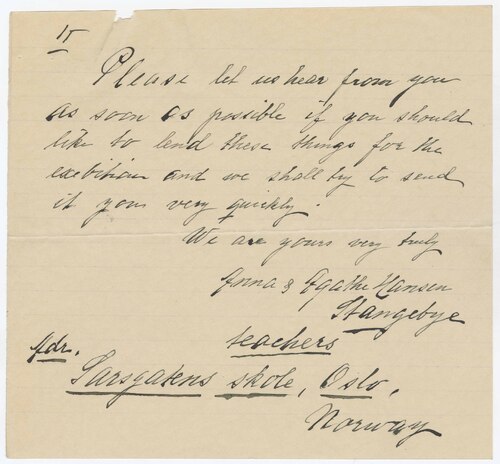 Please let us hear from you
as soon as possible if you should
like to lend these things for the
exebition and we shall try to send
it you very quickly.
We are yours very truly
Anna & Agathe Hansen
Stangebye
teachers
Adr.
Sarsgatens skole, Oslo,
Norway